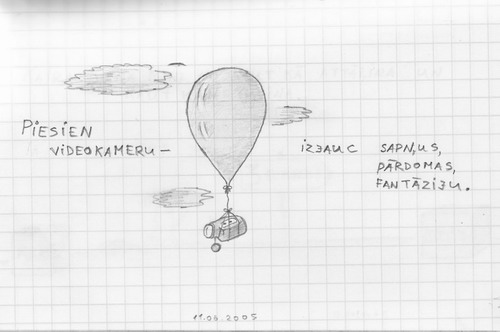 PIESIEN
VIDEOKAMERU –
IZJAUC SAPŅUS,
PĀRDOMAS,
FANTĀZIJU.
11.06.2005